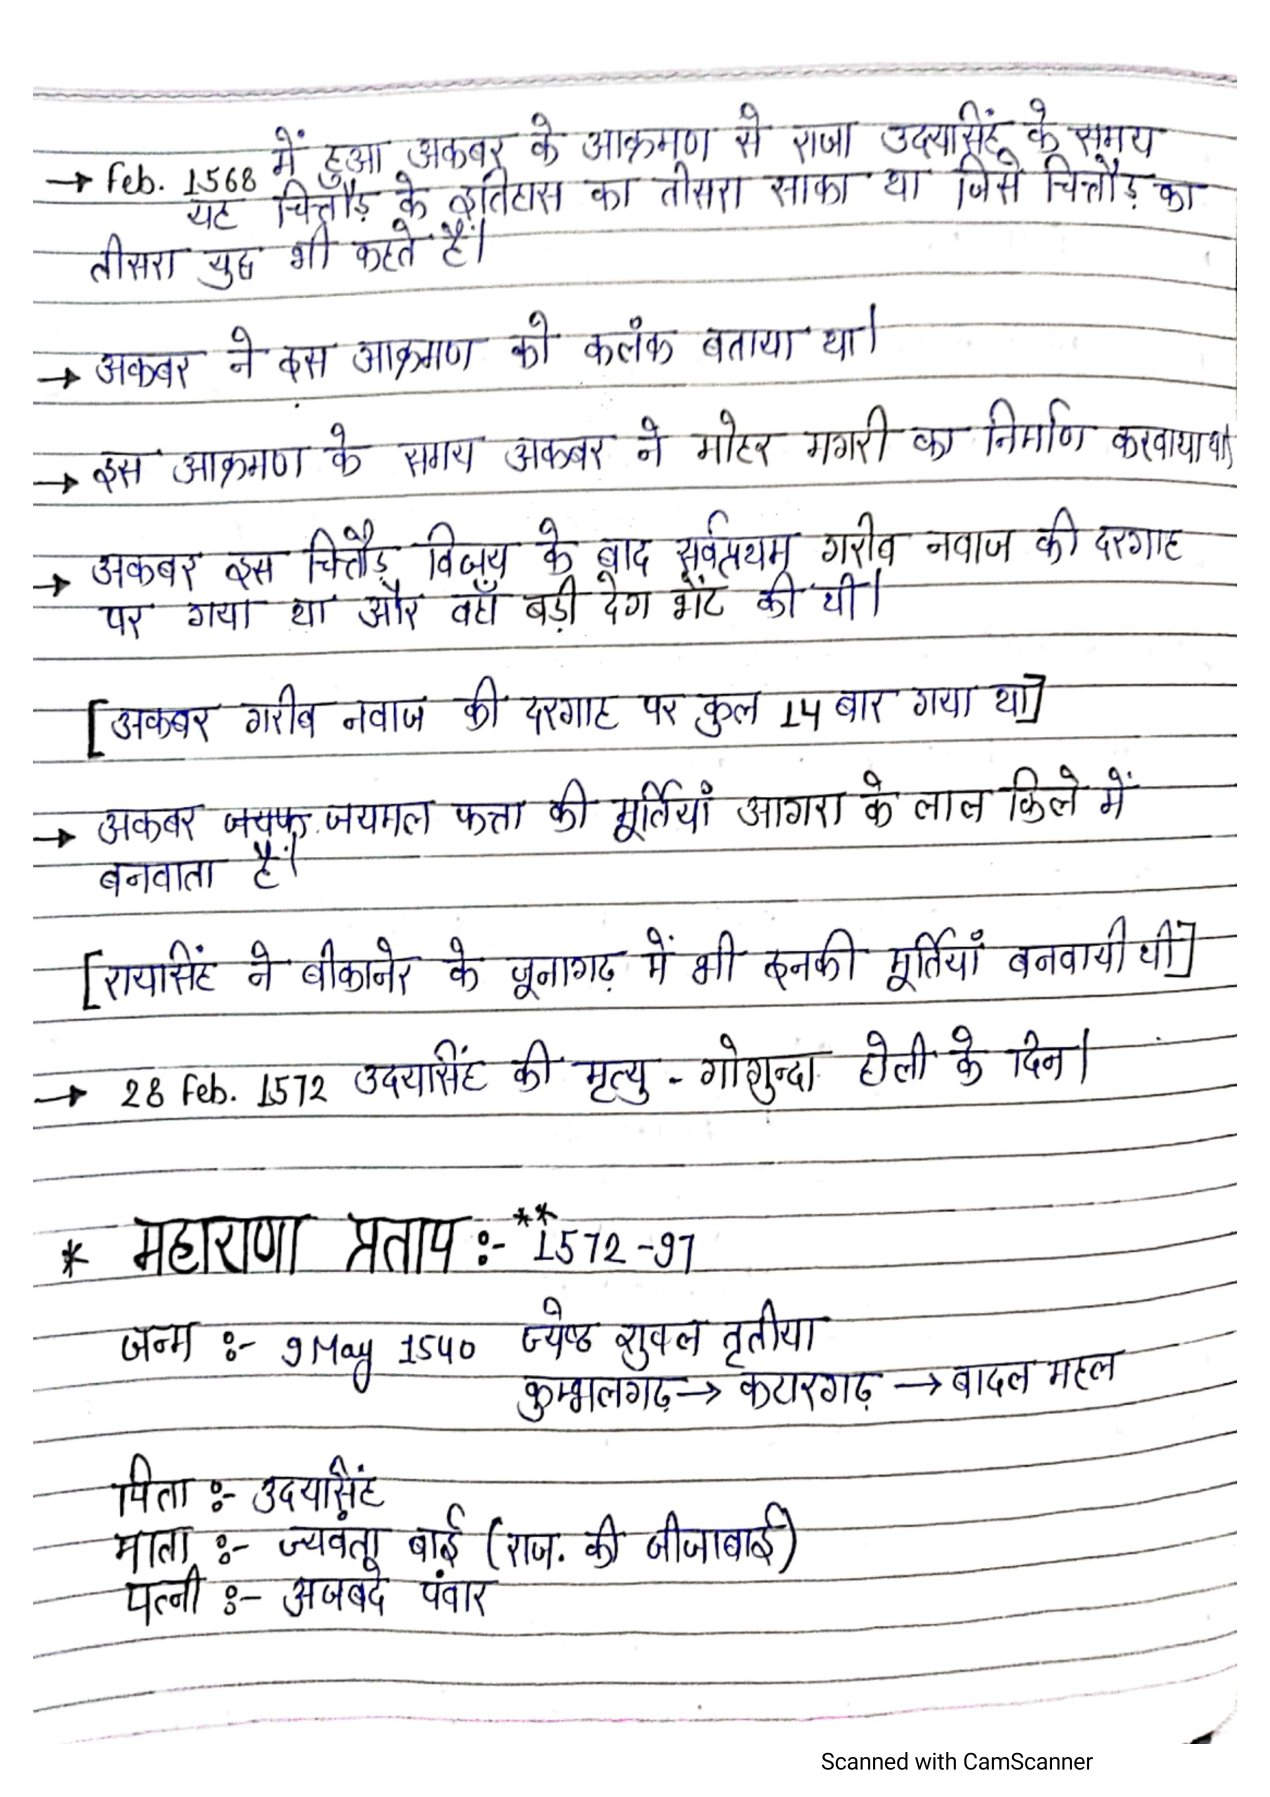 → Feb. 1568 में हुआ अकबर के आक्रमण से राजा उदयसिंह के समय
यह चित्तौड़ के इतिहास का तीसरा साका था जिसे चित्तौड़ का
तीसरा युद्ध भी कहते हैं।
→ अकबर ने इस आक्रमण को कलंक बताया था।
→ इस आक्रमण के समय अकबर ने मोहर मगरी का निर्माण करवाया था
→ अकबर इस चित्तौड़ विजय के बाद सर्वप्रथम गरीब नवाज की दरगाह
पर गया था और वहाँ बड़ी देग भेंट की थी।
[अकबर गरीब नवाज की दरगाह पर कुल 14 बार गया था]
→ अकबर जयमल फत्ता की मूर्तियाँ आगरा के लाल किले में
बनवाता है।
[रायसिंह ने बीकानेर के जूनागढ़ में भी इनकी मूर्तियाँ बनवायी थी]
→ 28 Feb. 1572 उदयसिंह की मृत्यु - गोगुन्दा होली के दिन।
* महाराणा प्रताप :- ** 1572-97
जन्म :- 9 May 1540 ज्येष्ठ शुक्ल तृतीया
कुम्भलगढ़ → कटारगढ़ → बादल महल
पिता :- उदयसिंह
माता :- ज्यवंता बाई (राज. की जीजाबाई)
पत्नी :- अजबदे पंवार
Scanned with CamScanner